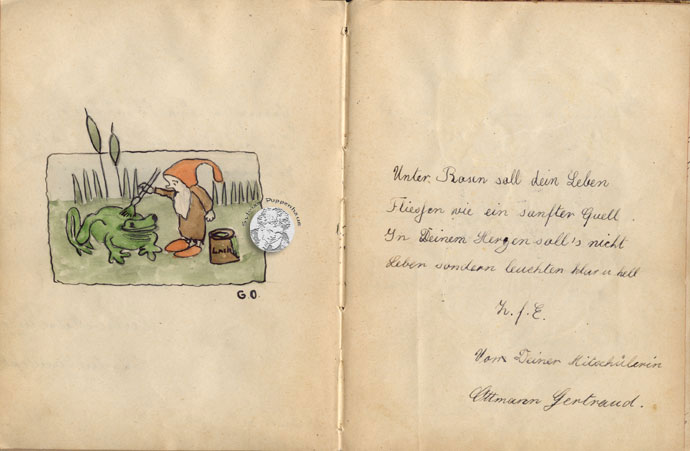 Puppenhaus
Lack
G.O.
Unter Rosen soll dein Leben
Fliessen wie ein sanfter Quell.
In Deinem Herzen soll's nicht
Leben sondern leuchten klar u hell
z. f. E.
Von Deiner Mitschülerin
Ottmann Gertraud.